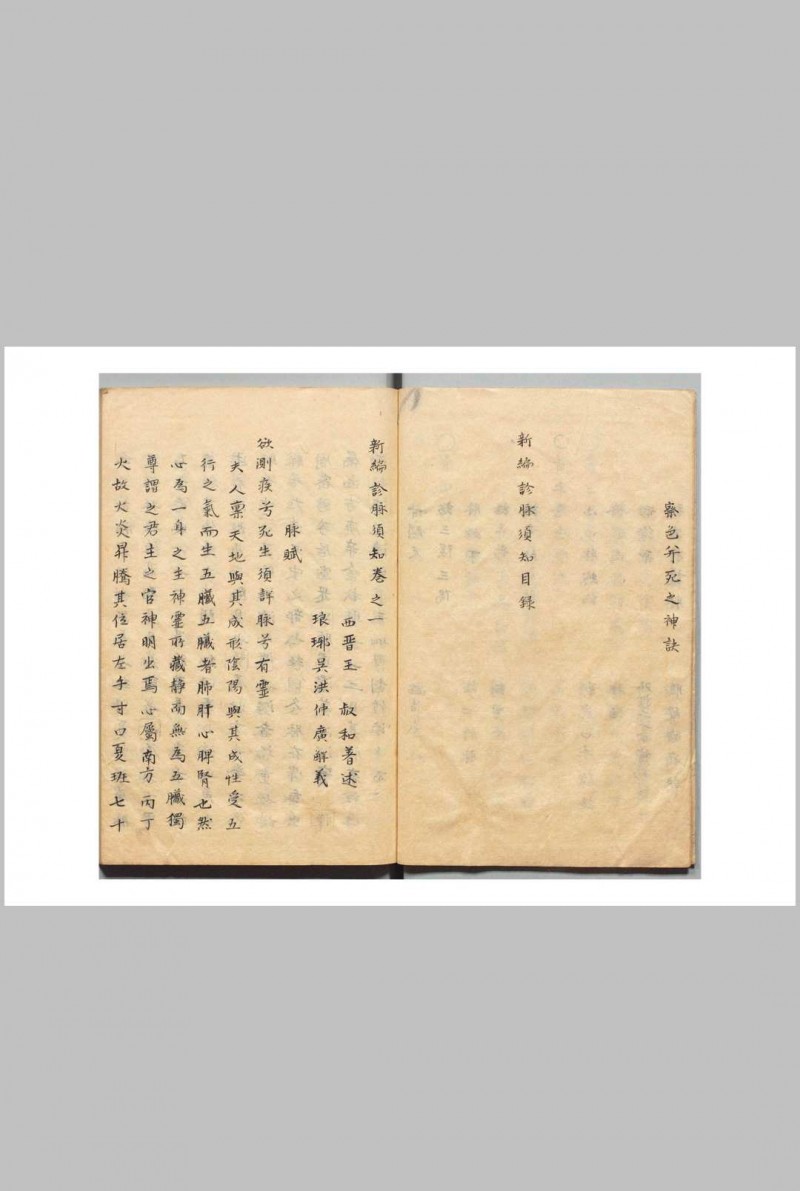 察色並死之神訣
新編診脉須知目録
新編診脉須知卷之一
西晋王叔和著述
琅琊吴洪仲廣觧義
脉賦
欲測疫兮死生須詳脉兮有霊
夫人禀天地與其成形陰陽與其成性受五
行之氣而生五臓五臓者肺肝心脾腎也然
心為一身之主神霊所藏静而無為五臓獨
尊謂之君主之官神明出焉心屬南方丙丁
火故火炎昇騰其位居左手寸口夏班七十